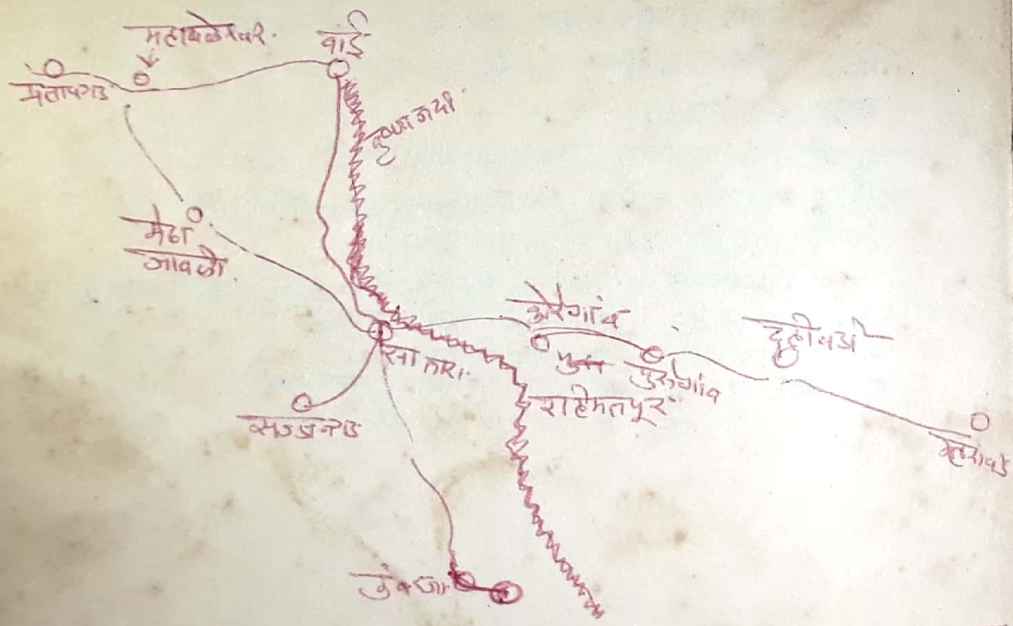 महाबळेश्वर.
वाई
प्रतापगड
कृष्णा नदी
मेढा
जावळी.
कोरेगांव
सातारा.
पुसेगांव
राहिमतपूर
सज्जनगड
उंब्रज